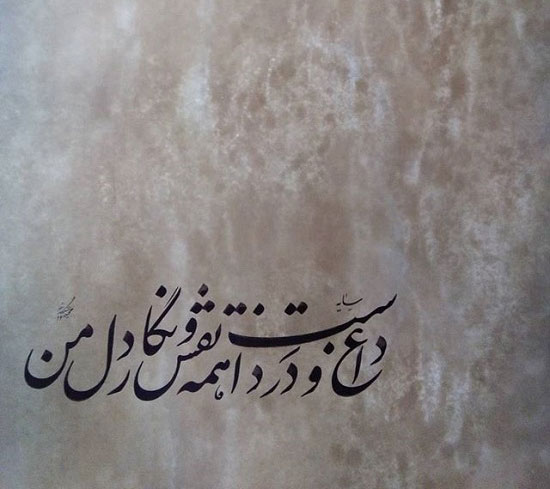 سایه
داغ و درد است همه نقش و نگار دل من